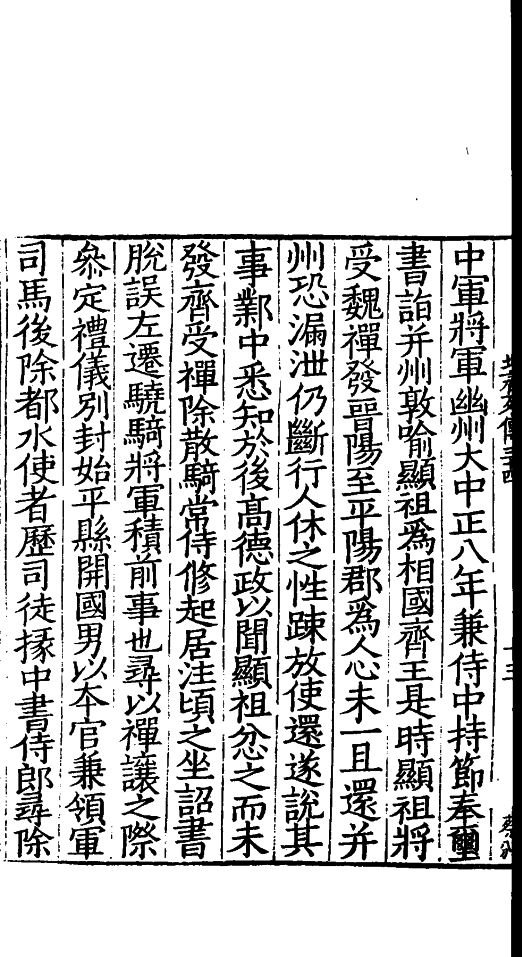 中軍將軍幽州大中正八年兼侍中持節奉璽
書詣并州敦喻顯祖爲相國齊王是時顯祖將
受魏禪發晉陽至平陽郡爲人心未一且還并
州恐漏泄仍斷行人休之性踈放使還遂說其
事鄴中悉知於後高德政以聞顯祖忿之而未
發齊受禪除散騎常侍修起居注頃之坐詔書
脫誤左遷驍騎將軍積前事也尋以禪讓之際
叅定禮儀別封始平縣開國男以本官兼領軍
司馬後除都水使者歷司徒掾中書侍郎尋除